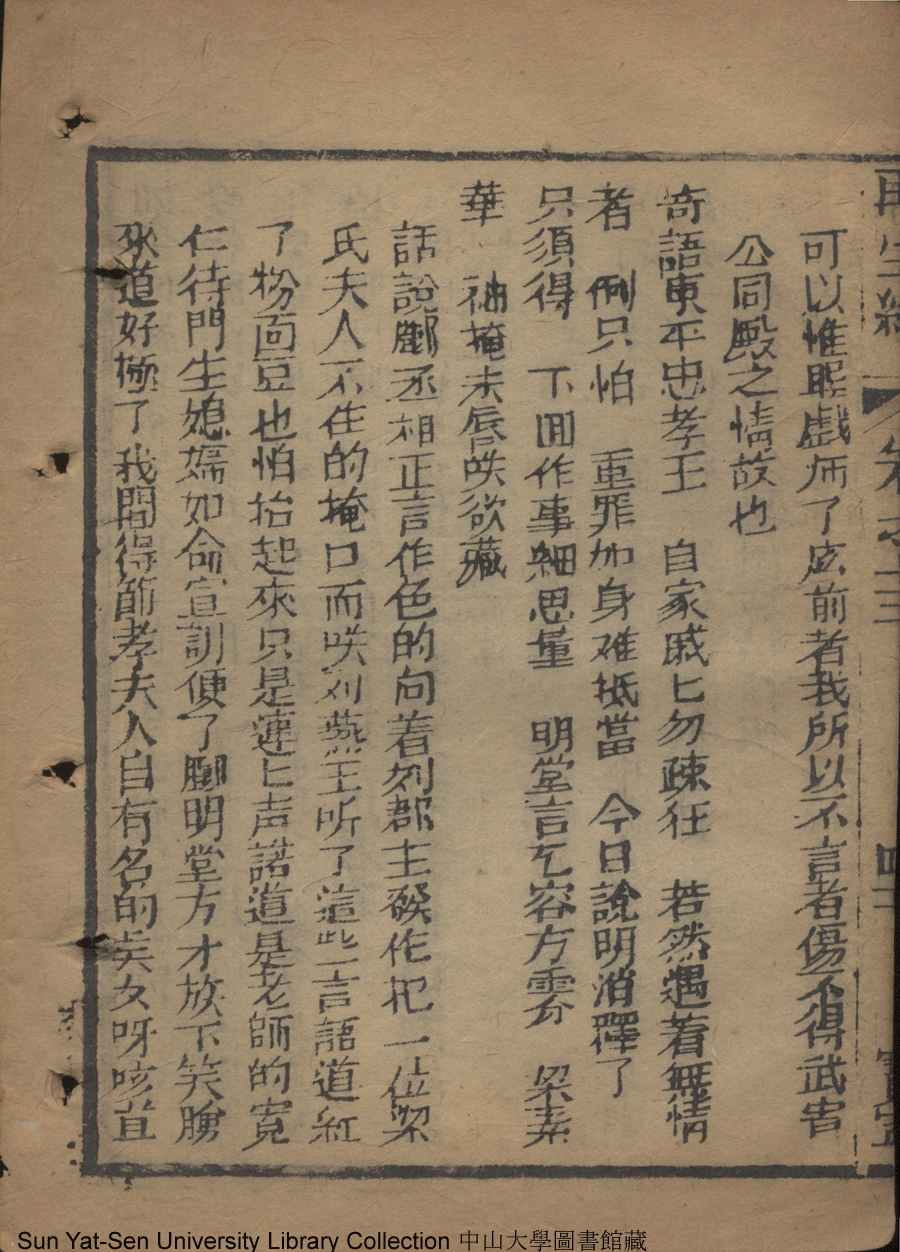 再生緣 卷之十三 寶寧
可以惟眠戲師了庒前者我所以不言者傷不得武吉
公同殿之情故也
寄語東平忠孝王 自家戚匕勿疎狂 若然遇着無情
者 例只怕 重罪加身难抵當 今日說明消釋了
只須得 下囬作事細思量 明堂言乞容方霽 梁素
華 袖掩朱唇㗛欲藏
話說酈丞相正言作色的向着刘郡主發作把一位梁
氏夫人不住的掩口而㗛刘燕王听了這些言語道紅
了粉面豆也怕抬起來只是連匕声諾道是老師的寛
仁待門生媳孺如命宣訓便了酈明堂方才放下笑臉
來道好極了我聞得節孝夫人自有名的矣女呀咳豈
Sun Yat-Sen University Library Collection 中山大學圖書館藏